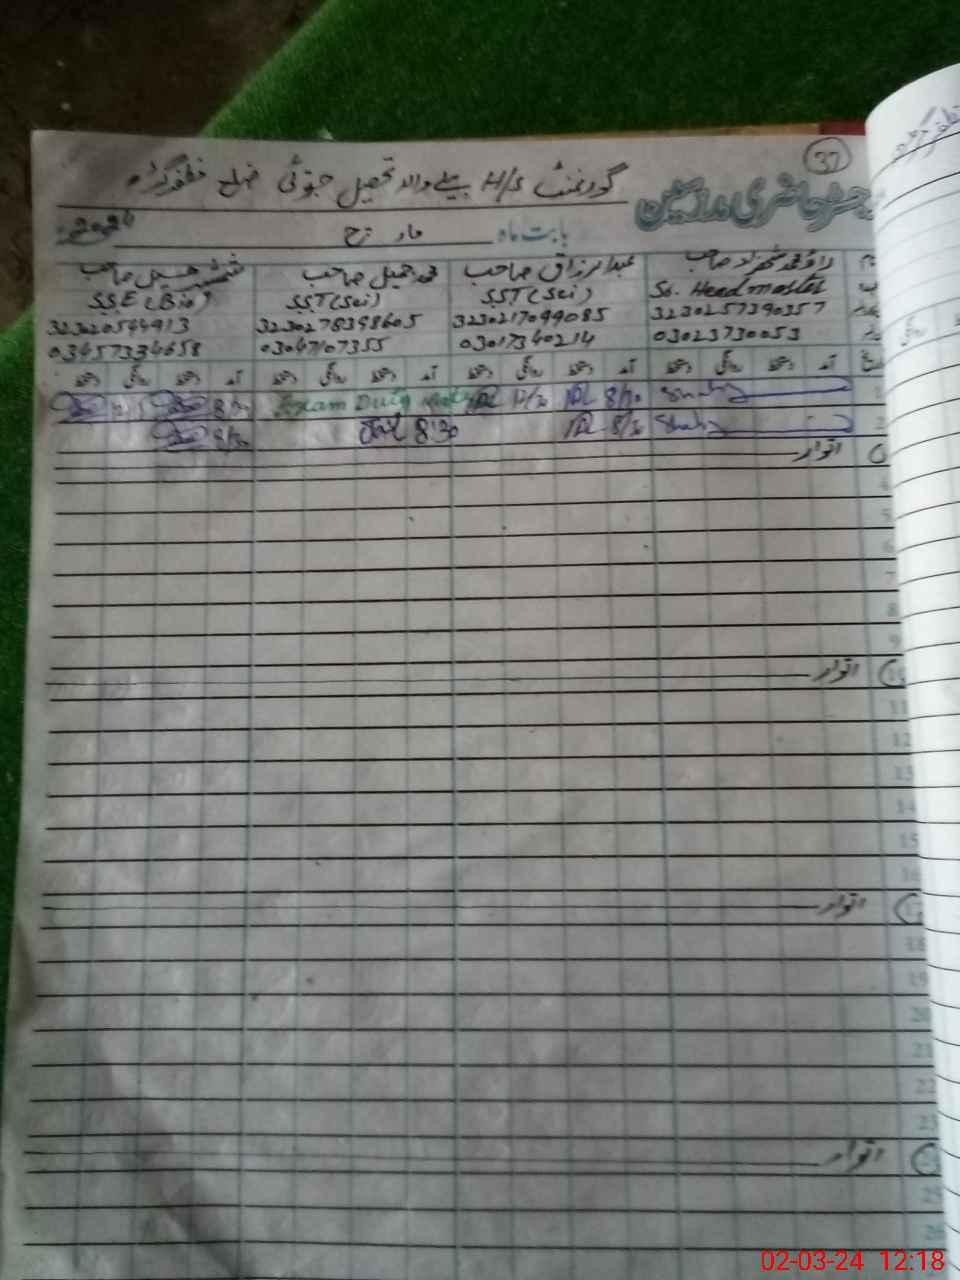 37
گورنمنٹ H/S بیلے والا تحصیل جتوئی ضلع مظفرگڑھ
رجسٹر حاضری مدرسین
بابت ماہ مارچ 2024ء
راؤ محمد شہزاد صاحب عبدالرزاق صاحب محمد جمیل صاحب شمشیر حسین صاحب
Sr. Head master SST (Sci) SST (Sci) SSE (Bio)
3230257390357 3230217099085 3230278398605 32302
03023730053 03017340214 03047107355 03457334658
آمد دستخط روانگی دستخط آمد دستخط روانگی دستخط آمد دستخط روانگی دستخط آمد دستخط روانگی دستخط
1 8/30 12/30 Exam Duty 8/30
2 8/30 8:30 8/30
اتوار
4
5
6
7
8
9
10 اتوار
11
12
13
14
15
16
17 اتوار
18
19
20
21
22
23
اتوار
25
26
02-03-24 12:18